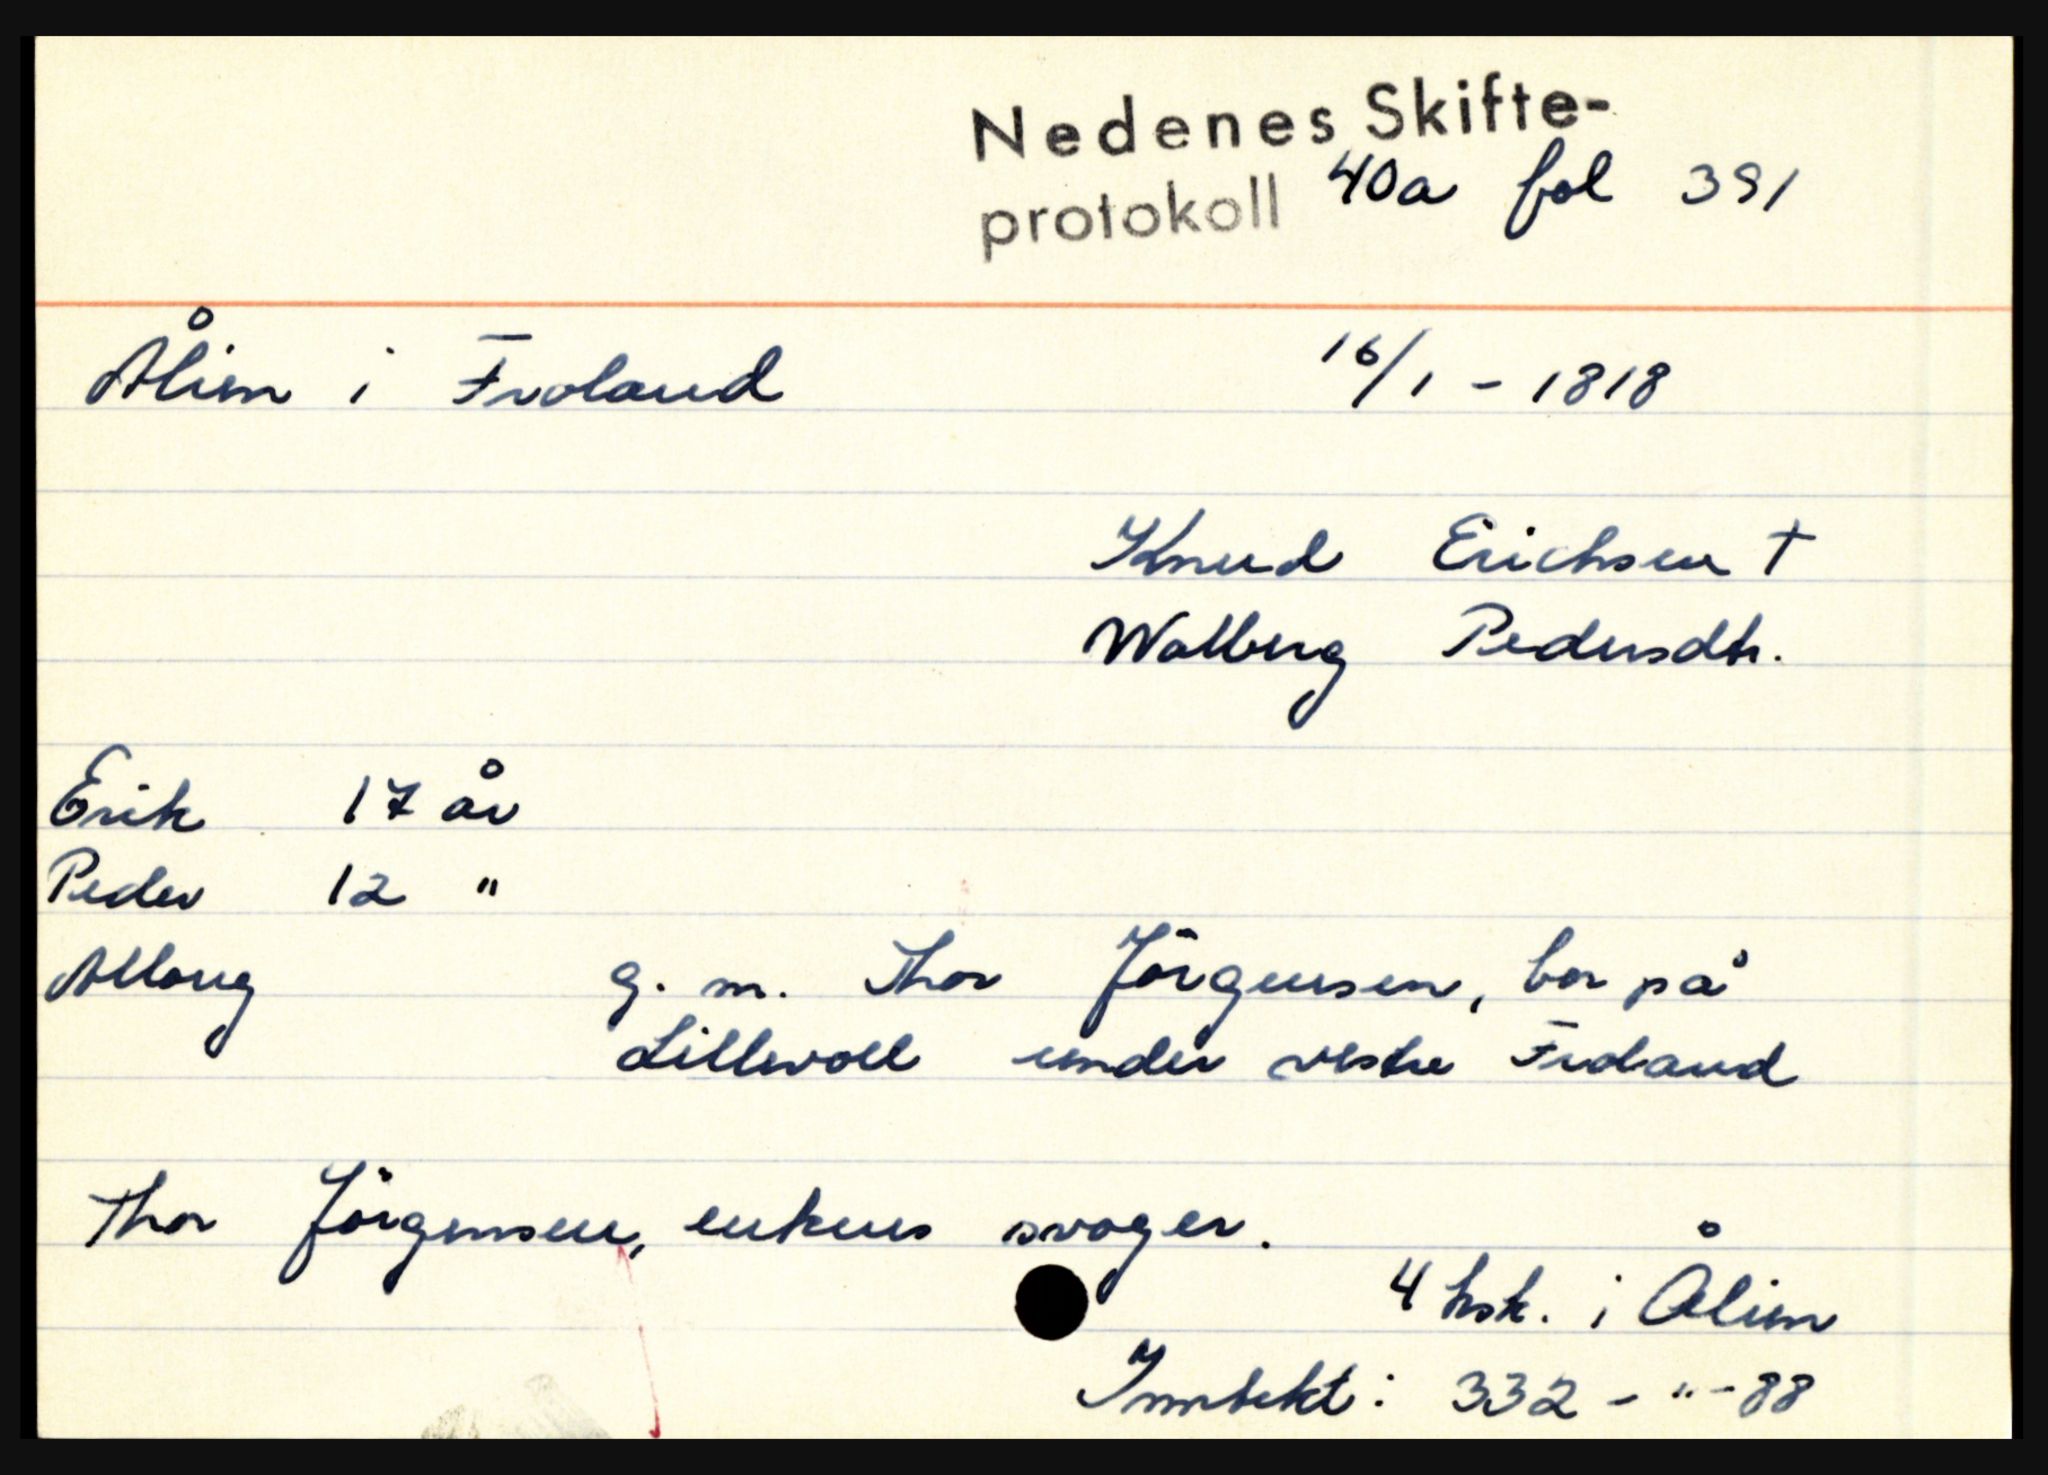 Nedenes Skifte-
protokoll 40a fol 391
Ålien i Froland 16/1 - 1818
Knud Erichsen †
Walberg Pedersdtr.
Erik 17 år
Peder 12 "
Alborg g. m. Thor Jörgensen, bor på
Lillevoll under vestre Froland
Thor Jörgensen, enkens svoger.
4 hsk. i Ålien
Inntekt: 332 - " - 88